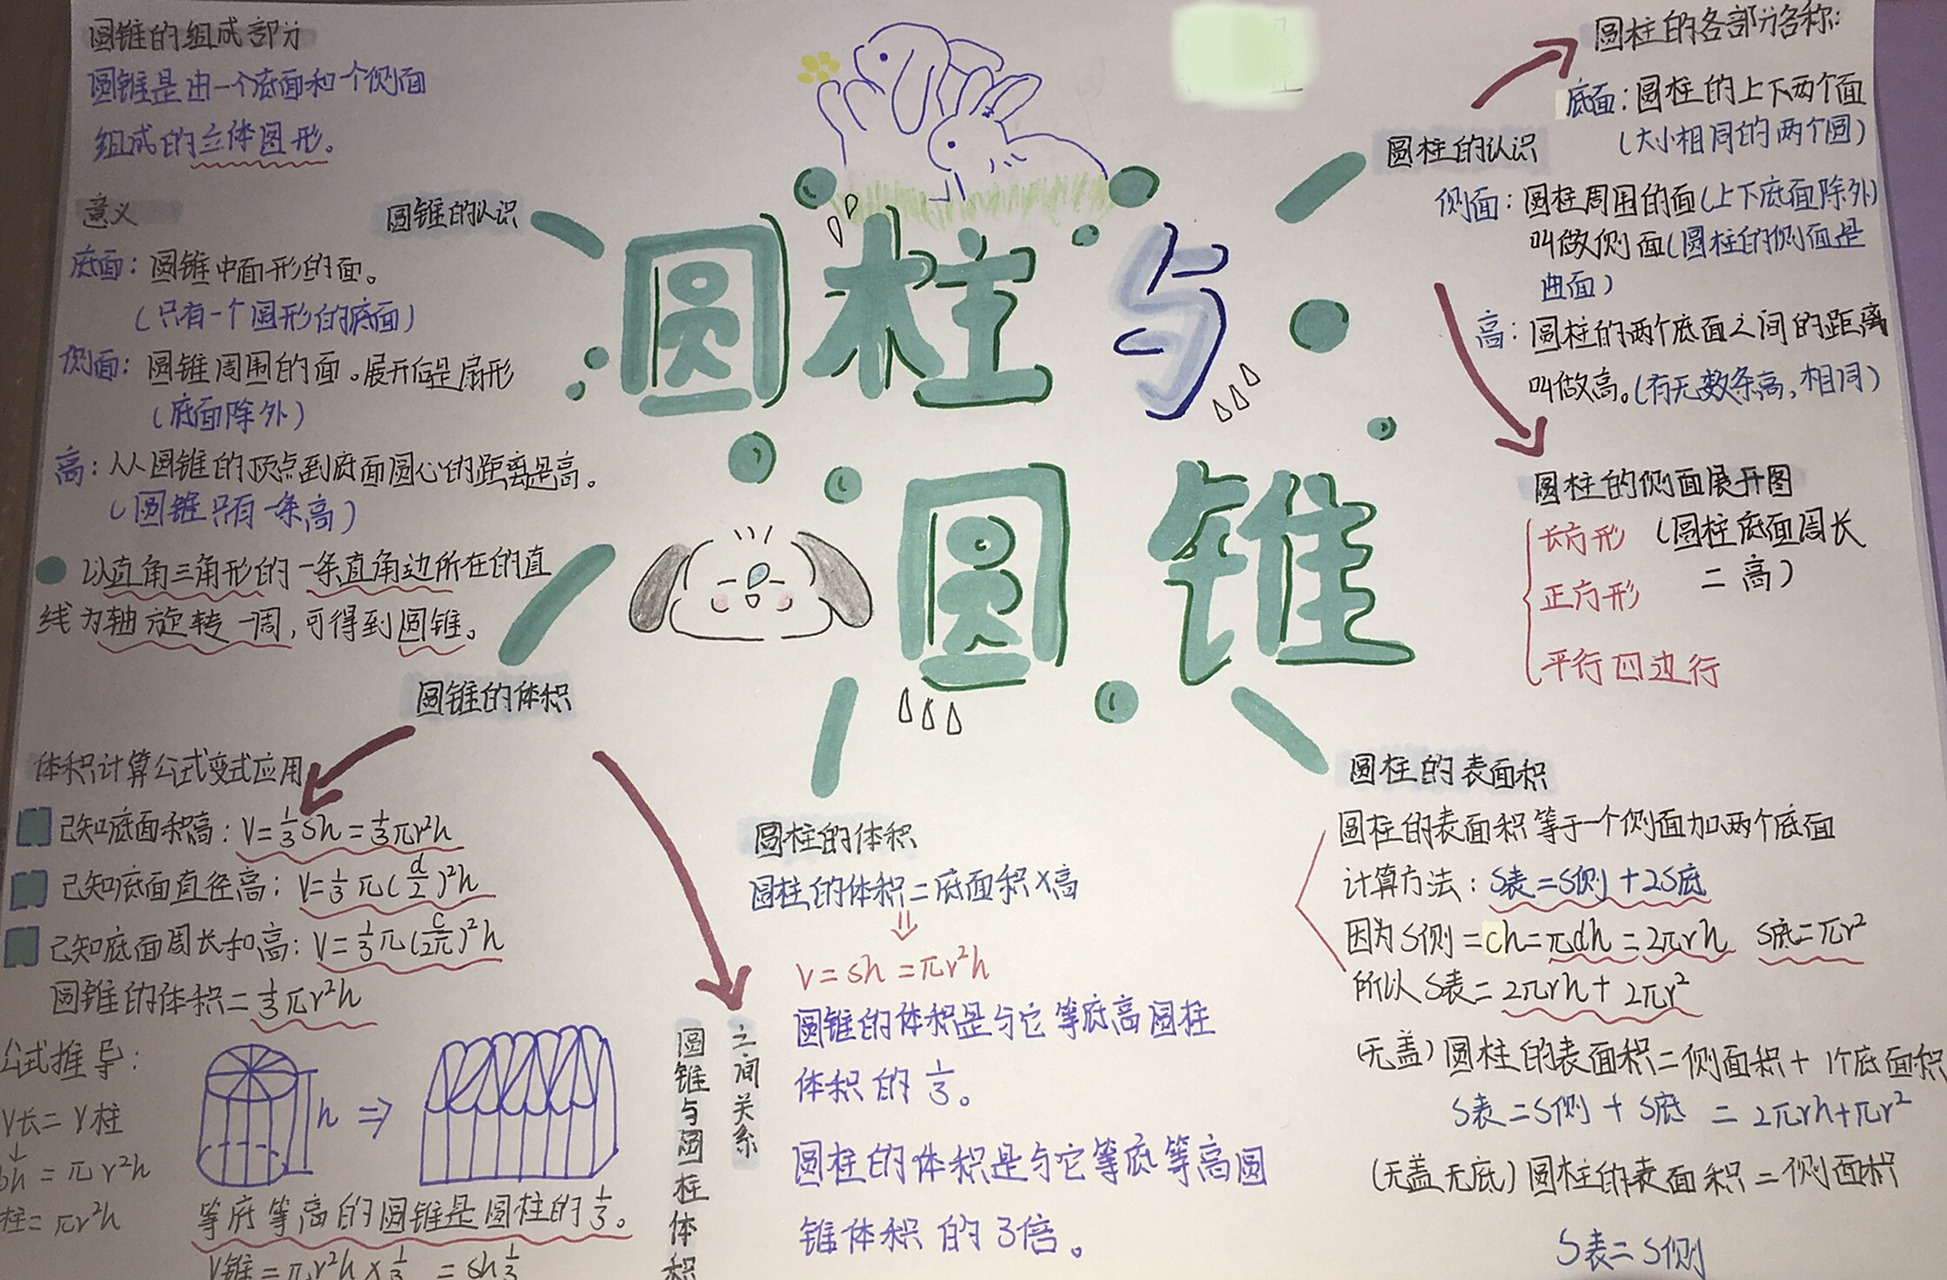 圆锥的组成部分
圆锥是由一个底面和个侧面
组成的立体图形。
意义
圆锥的认识
底面：圆锥中面形的面。
（只有一个圆形的底面）
侧面：圆锥周围的面。展开后是扇形
（底面除外）
高：从圆锥的顶点到底面圆心的距离是高。
（圆锥只有一条高）
以直角三角形的一条直角边所在的直
线为轴旋转一周，可得到圆锥。
圆柱与
圆锥
圆柱的认识
圆柱的各部分名称：
底面：圆柱的上下两个面
（大小相同的两个圆）
侧面：圆柱周围的面（上下底面除外）
叫做侧面（圆柱的侧面是
曲面）
高：圆柱的两个底面之间的距离
叫做高。（有无数条高，相同）
圆柱的侧面展开图
长方形（圆柱底面周长
二高）
正方形
平行四边行
圆锥的体积
体积计算公式变式应用
已知底面积高：V=1/3Sh=1/3πr²h
已知底面直径高：V=1/3π(d/2)²h
已知底面周长和高：V=1/3π(c/2π)²h
圆锥的体积=1/3πr²h
公式推导：
V长=V柱
h
bh=πr²h
柱=πr²h
等底等高的圆锥是圆柱的1/3。
V锥=πr²h×1/3=sh1/3
圆锥与圆柱体积
之间关系
圆柱的体积
圆柱的体积=底面积×高
V=sh=πr²h
圆锥的体积是与它等底高圆柱
体积的1/3。
圆柱的体积是与它等底等高圆
锥体积的3倍。
圆柱的表面积
圆柱的表面积等于一个侧面加两个底面
计算方法：S表=S侧+2S底
因为S侧=Ch=πdh=2πrh S底=πr²
所以S表=2πrh+2πr²
(无盖)圆柱的表面积=侧面积+1个底面积
S表=S侧+S底=2πrh+πr²
(无盖无底)圆柱的表面积=侧面积
S表=S侧